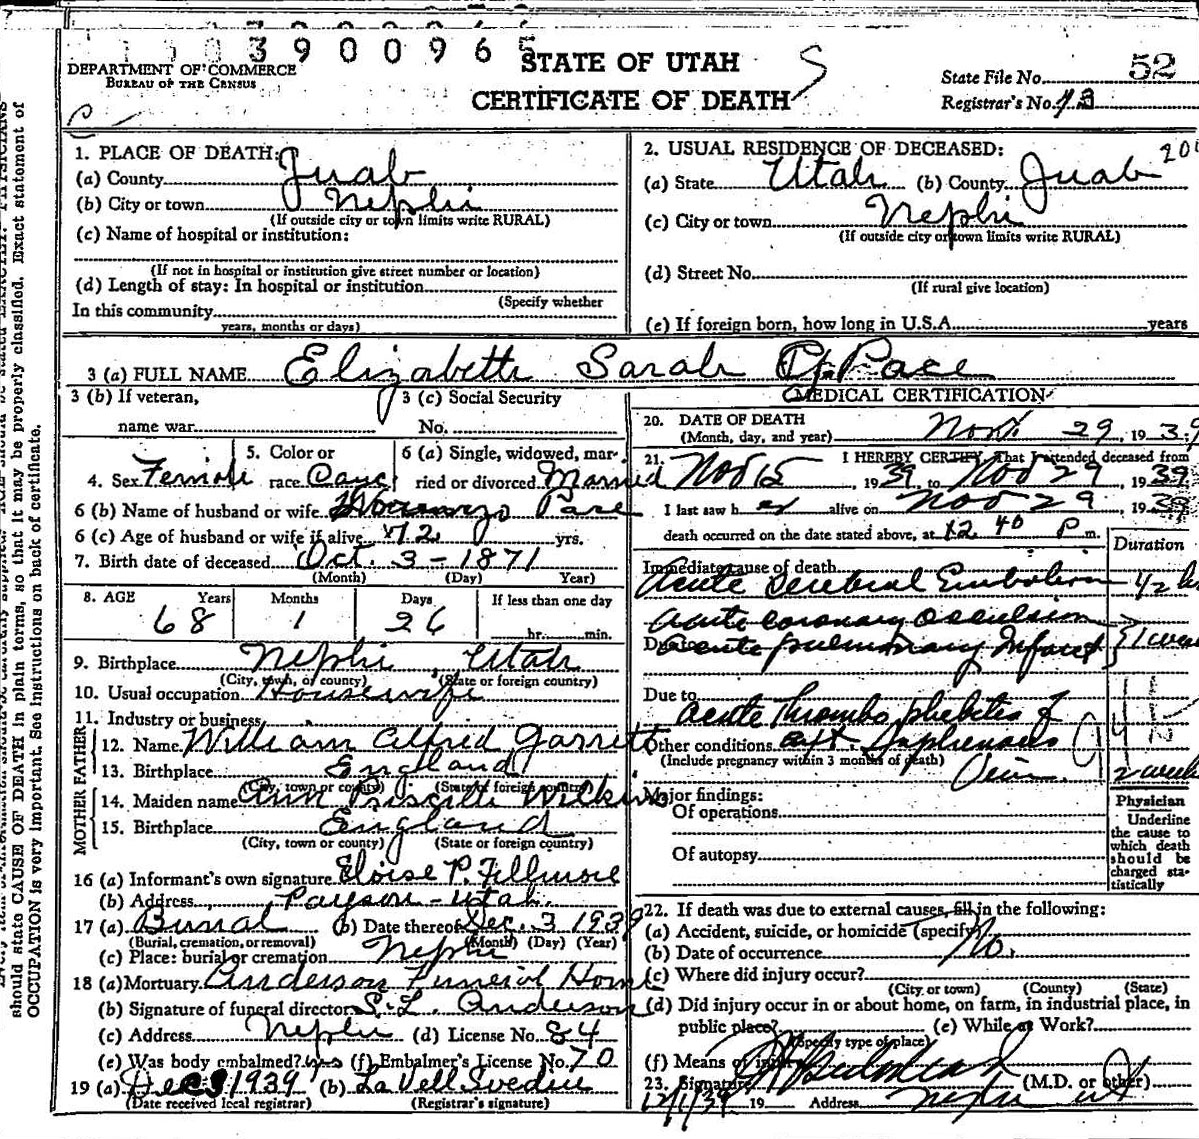 3900965
DEPARTMENT OF COMMERCE
BUREAU OF THE CENSUS
STATE OF UTAH
CERTIFICATE OF DEATH
State File No. 52
Registrar's No. 43
should state CAUSE OF DEATH in plain terms, so that it may be properly classified. Exact statement of
OCCUPATION is very important. See instructions on back of certificate.
1. PLACE OF DEATH:
(a) County Juab
(b) City or town Nephi
(If outside city or town limits write RURAL)
(c) Name of hospital or institution:
(If not in hospital or institution give street number or location)
(d) Length of stay: In hospital or institution
(Specify whether
In this community
years, months or days)
2. USUAL RESIDENCE OF DECEASED:
(a) State Utah (b) County Juab
(c) City or town Nephi
(If outside city or town limits write RURAL)
(d) Street No.
(If rural give location)
(e) If foreign born, how long in U.S.A. years
3 (a) FULL NAME Elizabeth Sarah Pace
3 (b) If veteran,
name war
3 (c) Social Security
No.
4. Sex Female
5. Color or
race Cauc
6 (a) Single, widowed, mar-
ried or divorced Married
6 (b) Name of husband or wife Pace
6 (c) Age of husband or wife if alive 72 yrs.
7. Birth date of deceased Oct. 3 - 1871
(Month) (Day) Year)
8. AGE Years Months Days If less than one day
68 1 26 hr. min.
9. Birthplace Nephi, Utah
(City, town, or county) (State or foreign country)
10. Usual occupation Housewife
11. Industry or business
FATHER
12. Name William Alfred Garrett
13. Birthplace England
(City, town or county) (State of foreign country)
MOTHER
14. Maiden name Ann Priscilla Wilkins
15. Birthplace England
(City, town or county) (State or foreign country)
16 (a) Informant's own signature Eloise P. Fillmore
(b) Address Payson - Utah.
17 (a) Burial (b) Date thereof Dec. 3 1939
(Burial, cremation, or removal) (Month) (Day) (Year)
(c) Place: burial or cremation Nephi
18 (a) Mortuary Anderson Funeral Home
(b) Signature of funeral director S. L. Anderson
(c) Address Nephi (d) License No. 84
(e) Was body embalmed? yes (f) Embalmer's License No. 70
19 (a) Dec 3 1939 (b) LaVell
(Date received local registrar) (Registrar's signature)
MEDICAL CERTIFICATION
20. DATE OF DEATH
(Month, day, and year) Nov. 29, 1939
21. I HEREBY CERTIFY, That I attended deceased from
Nov 15, 1939, to Nov 29 1939
I last saw h er alive on Nov 29, 1939
death occurred on the date stated above, at 12.40 P m.
Duration
Immediate cause of death
Acute Cerebral Embolism 1/2 hr
acute coronary occulsion
Due to acute pulmonary Infarct } 1 week
Due to
acute Thrombo phlebitis of
Other conditions Saphenous
(Include pregnancy within 3 months of death)
Vein. 2 weeks
Major findings:
Of operations
Of autopsy
Physician
Underline
the cause to
which death
should be
charged sta-
tistically
22. If death was due to external causes, fill in the following:
(a) Accident, suicide, or homicide (specify) No.
(b) Date of occurrence
(c) Where did injury occur?
(City or town) (County) (State)
(d) Did injury occur in or about home, on farm, in industrial place, in
public place? (e) While at Work?
(Specify type of place)
(f) Means of injury
23. Signature (M.D. or other)
12/1/39 19 Address Nephi Ut